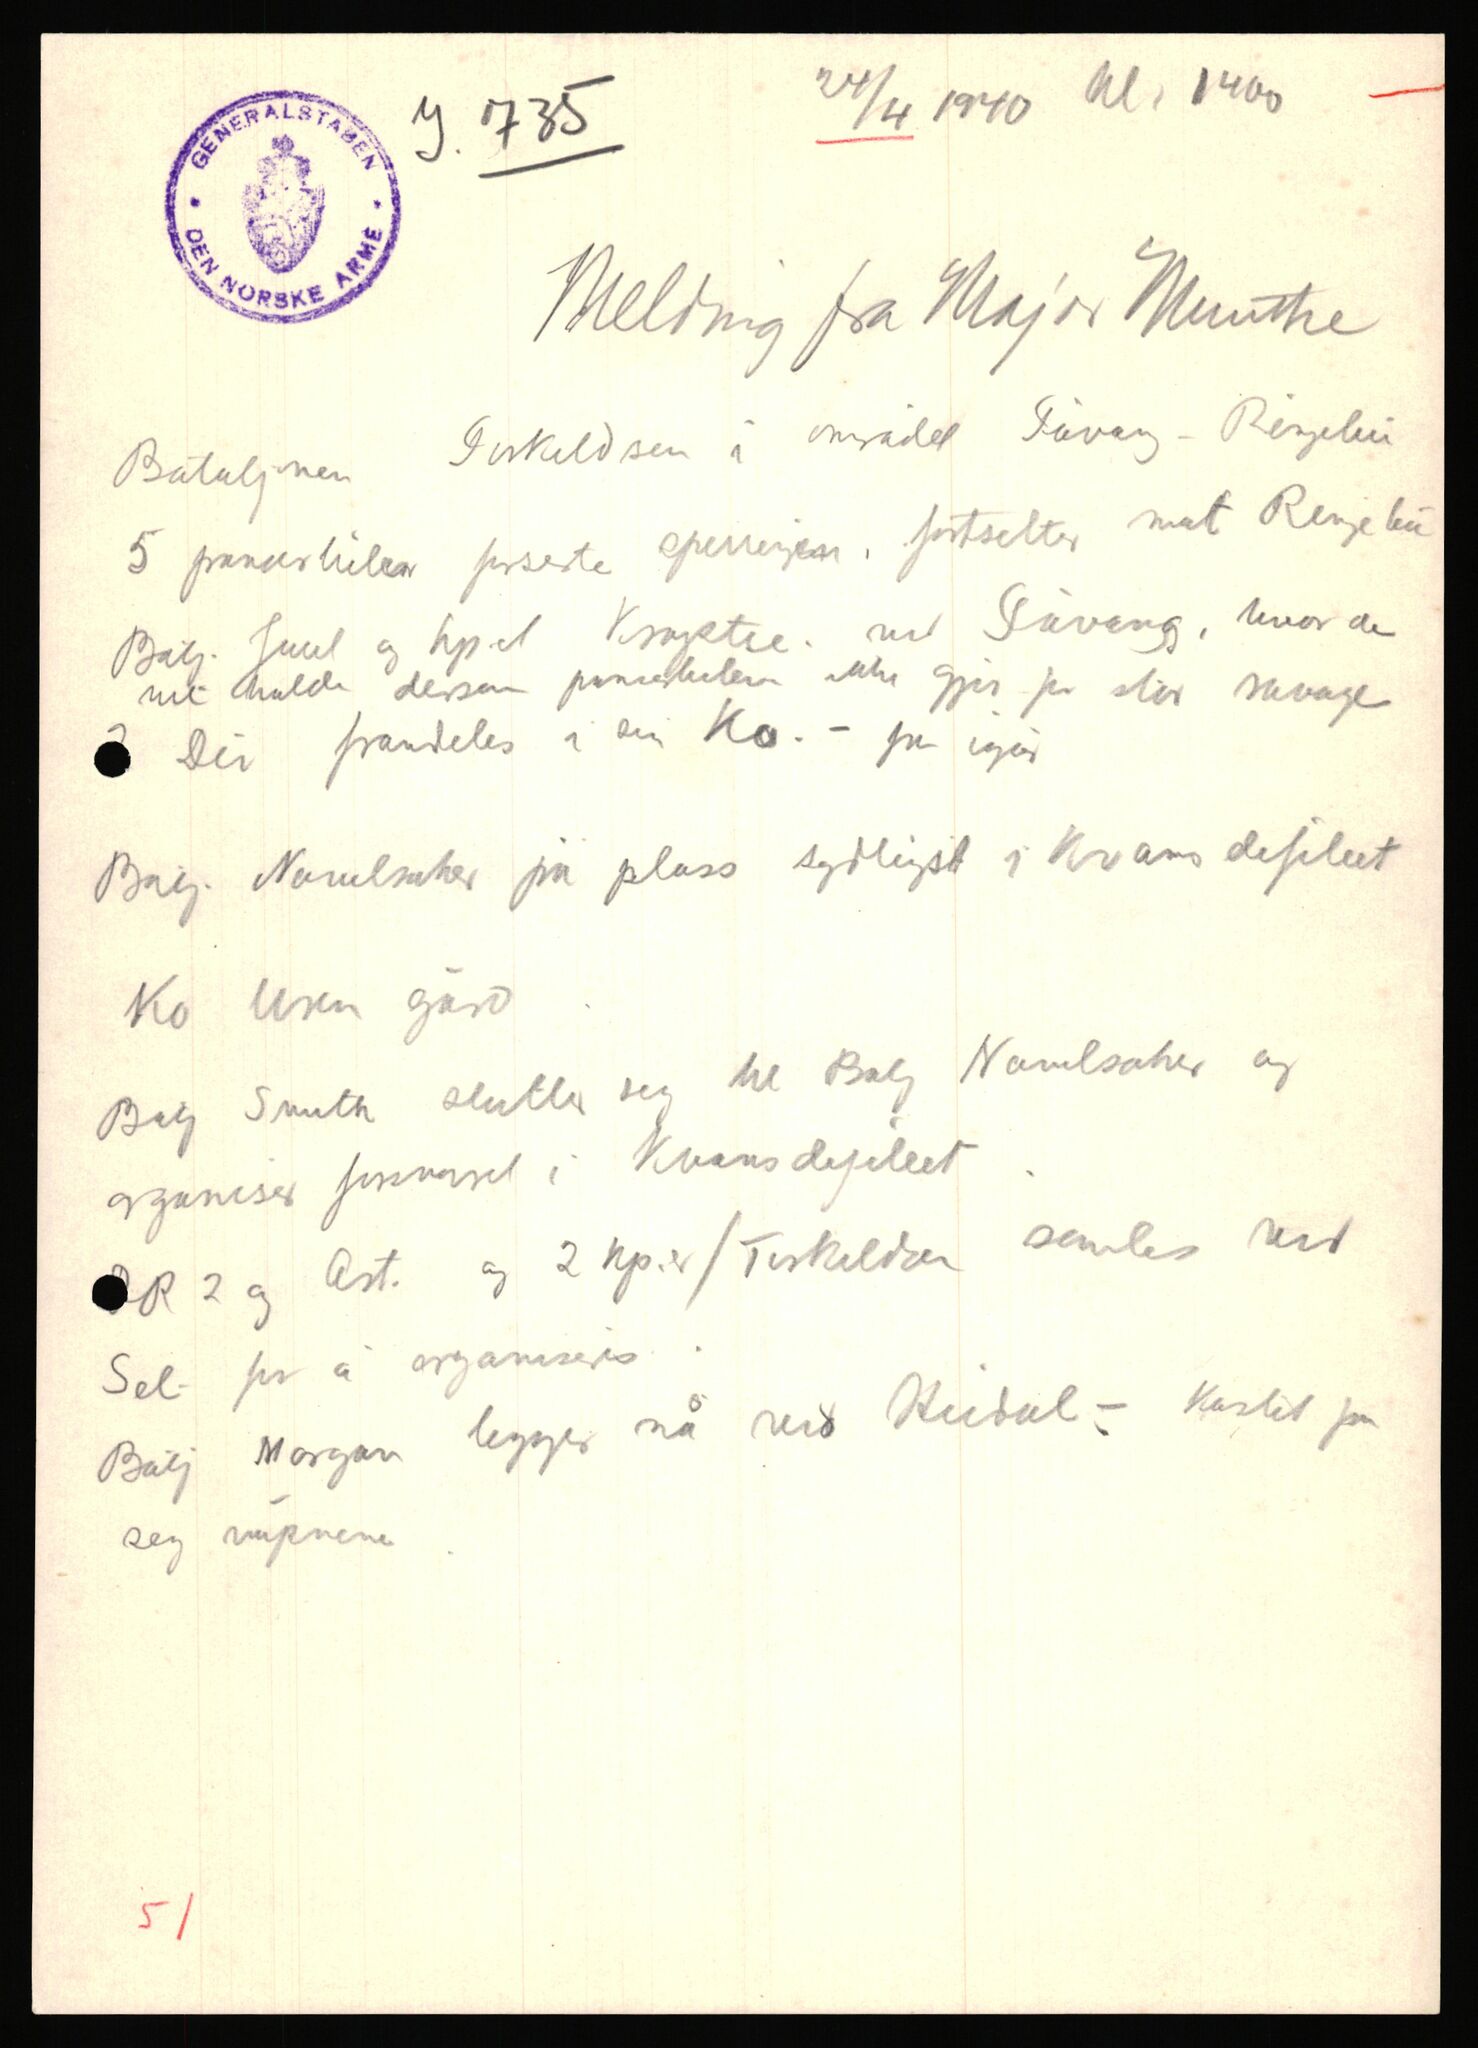 GENERALSTABEN
DEN NORSKE ARME
J. 735
24/4 1940 kl. 1400
Melding fra Major Munthe
Bataljonen Torkildsen i området Fåvang - Ringebu
5 panserbiler forserte sperringen, fortsetter mot Ringebu
Balj. Juul og kp.et ved Fåvang, hvor de
vil holde dersom panserbilene ikke gjør for stor ravage
Div fremdeles i sin Ko. - fra igår
Balj. på plass sydligst i Kvamsdefileet
Ko gård
Balj Smith slutter seg til Balj og
organiser forsvaret i Kvamsdefileet.
DR 2 og Art. og 2 kp.er/Torkildsen samles ved
Sel for å organiseres.
Balj Morgan ligger nå ved Heidal - kastet fra
seg våpnene.
51